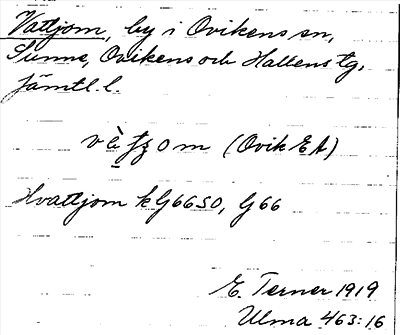 Vattjom, by i Ovikens sn,
Sunne, Ovikens och Hallens tg,
Jämtl. l.
(Ovik EA)
Hvattjom kG66SO, G66
E. Terner 1919
Ulma 463:16